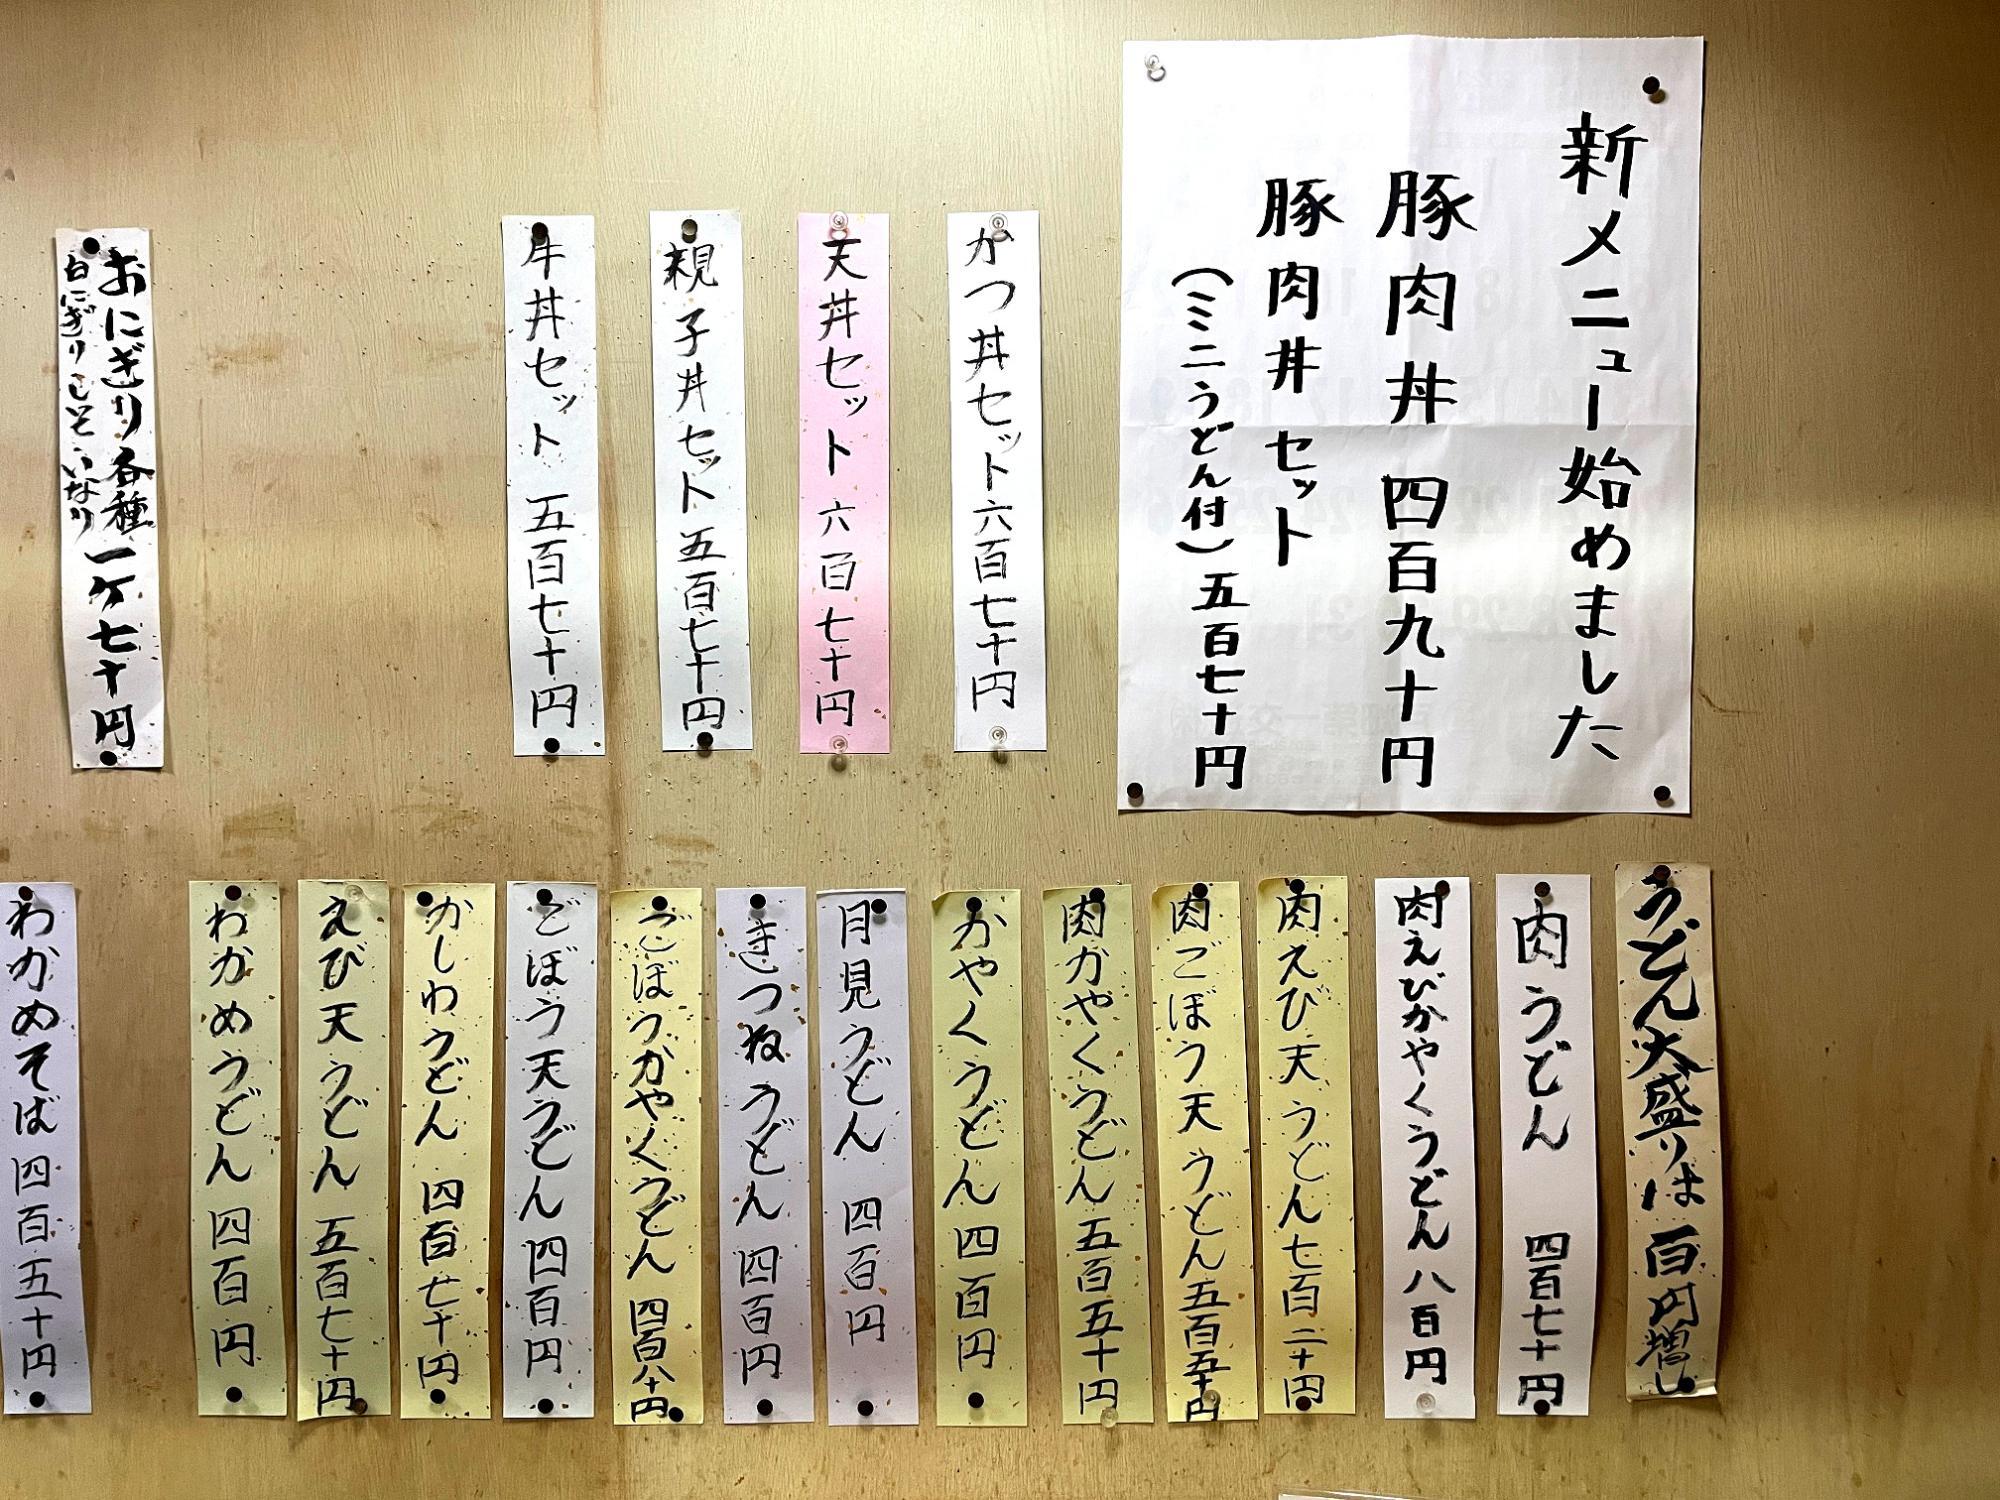 新メニュー始めました
豚肉丼 四百九十円
豚肉丼セット
(ミニうどん付)五百七十円
かつ丼セット六百七十円
天丼セット六百七十円
親子丼セット五百七十円
牛丼セット 五百七十円
おにぎり各種一ケ七十円
白にぎりしそいなり
うどん大盛りは百円増し
肉うどん 四百七十円
肉えびかやくうどん八百円
肉えび天うどん七百二十円
肉ごぼう天うどん五百五十円
肉かやくうどん五百五十円
かやくうどん四百円
月見うどん 四百円
きつねうどん四百円
ごぼうかやくうどん四百八十円
ごぼう天うどん四百円
かしわうどん四百七十円
えび天うどん五百七十円
わかめうどん四百円
わかめそば四百五十円